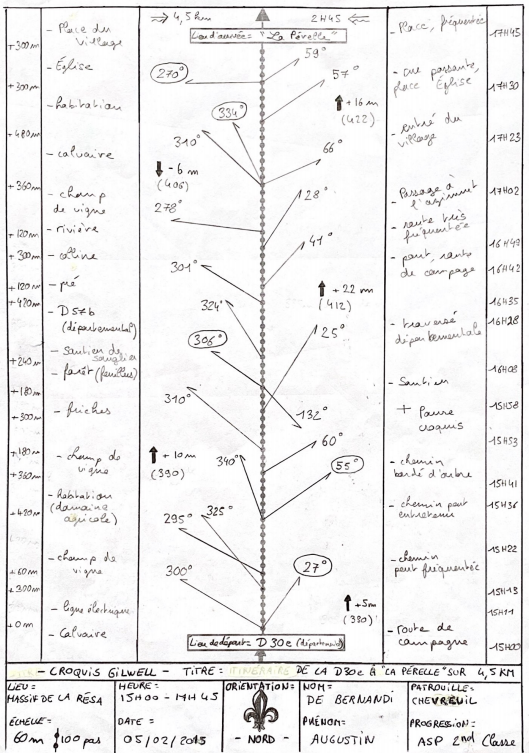 4,5 km
2H45
Lieu d'arrivée = "La Pérelle"
- Place du village
- Place, fréquentée
17H45
+300m
59°
- Église
270°
57°
- rue passante, place Église
17H30
+300m
+16 m
(422)
- habitation
334°
- entré du village
17H23
+480m
310°
66°
- calvaire
- 6 m
(406)
- Passage à l'
17H02
+360m
- champ de vigne
28°
278°
- route très fréquentée
16H49
+120m
- rivière
41°
+300m
- colline
- pont, route de campagne
16H42
301°
+120m
- pré
+22 m
(412)
16H35
+420m
- D57b
(départemental)
324°
25°
- traversé départementale
16H28
306°
+240m
- forêt (feuilles)
16H08
- Sentier
+180m
310°
132°
15H58
+300m
- friches
+ Pause croquis
60°
15H53
+180m
- champ de vigne
+10m
(390)
340°
55°
- chemin bordé d'arbre
+360m
15H41
- habitation
(domaine agricole)
- chemin peut entretenu
15H36
+420m
325°
295°
15H22
- champ de vigne
- chemin peut fréquentée
+60m
300°
27°
15H13
+300m
- ligne électrique
+5m
(380)
15H11
+0m
- Calvaire
Lieu de départ = D30e (départemental)
- route de campagne
15H00
- CROQUIS GILWELL - TITRE = ITINÉRAIRE DE LA D30e À "LA PÉRELLE" SUR 4,5 KM
LIEU =
MASSIF DE LA RÉSA
HEURE =
15H00 - 17H45
ORIENTATION =
- NORD -
NOM =
DE BERNANDI
PATROUILLE =
CHEVREUIL
ÉCHELLE =
60m 100 pas
DATE =
05/02/2015
PRÉNOM =
AUGUSTIN
PROGRESSION =
ASP 2nd Classe